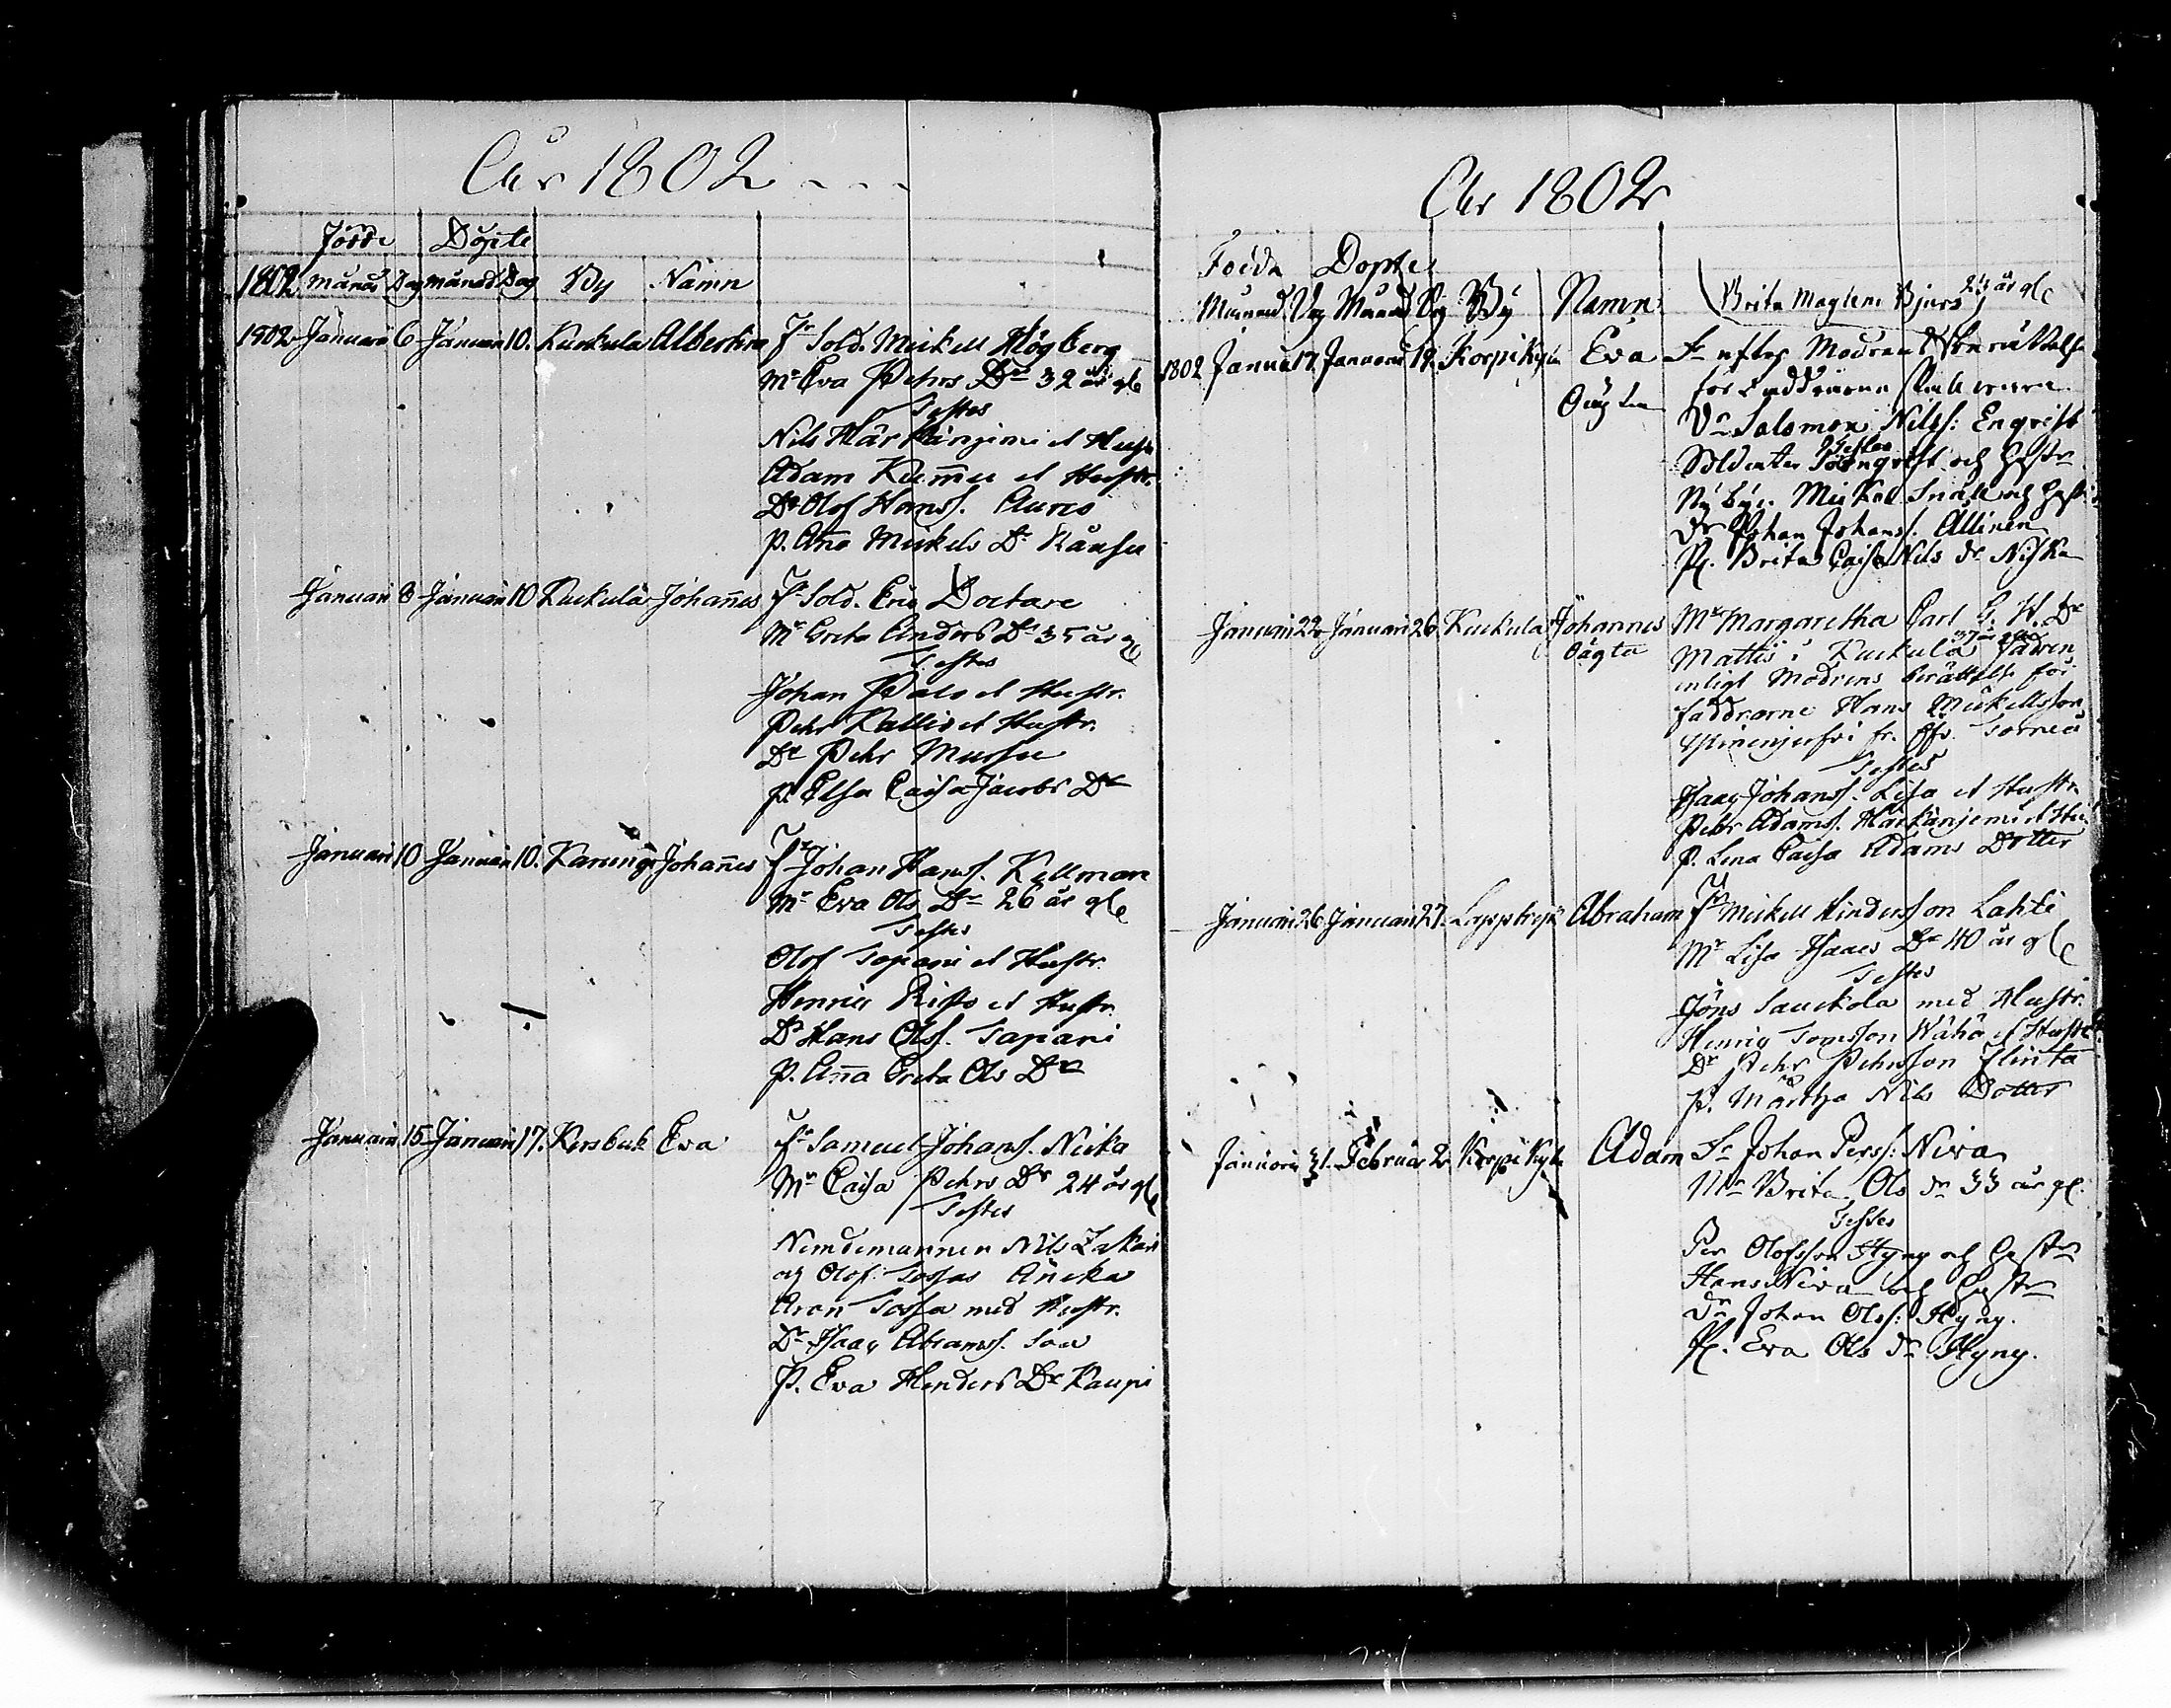 År 1802
Födde Döpte
1802 Månad Dag Månad Dag By Namn
1802 Januari 6 Januari 10. Kuckula Albertina Fr Sold. Mickell Högberg
Mr Eva Pehrs Dr 32 år gl
Testes
Nils Härkänjemi et Hustr
Adam Kummu et Hustr.
Dr Olof Hanss. Auno
P. Ana Mickels Dr
Januari 8 Januari 10 Kuckula Johannes Fr Sold. Eric Doctare
Mr Greta Anders Dr 35 år gl
Testes
Johan Palo et Hustr.
Pehr Kallio et Hustr.
Dr Pehr Mursu
P. Elsa Caisa Jacobs Dr
Januari 10 Januari 10. Karungi Johannes Fr Johan Hanss. Kellman
Mr Eva Ols Dr 26 år gl
Testes
Olof Tapani et Hustr.
Henric Risto et Hustr.
Dr Hans Olss. Tapani
P. Anna Greta Ols Dr
Januari 15 Januari 17. Kersbäck Eva Fr Samuel Johanss. Nicka
Mr Caisa Pehrs Dr 24 år gl
Testes
Nemdemannen Nils
och Olof
Aron med Hustr.
Dr Isaac Abramss.
P. Eva Henders Dr Kaupi
År 1802
Födde Döpte
Månad Dag Månad Dag By Namn Brita Maglena 24 år gl
1802 Januari 17. Januari 19. Korpikylä Eva Fr efter Modren
Oägta
Dr Salomon Nilss: Enqvist
Testes
Soldaten och Hustr
Mickel Snäll och Hustr
Dr Johan Johanss. Allinen
P. Brita Caisa Nils dr Niska
Januari 22 Januari 26. Kuckula Johannes Mr Margaretha Carl G. H. Dr
Oägta Mattis i Kuckula 37 år Fadren
enligt Modrens berättelse för
faddrarne Hans Mickellsson
fr. Öfv. Torneå
Testes
Isaac Johanss. Lisa et Hustr.
Pehr Adamss. Härkänjemi et Hu
P. Lena Caisa Adams Dotter
Januari 26 Januari 27. Lappträsk Abraham Fr Mickell Hindersson Lahti
Mr Lisa Isaacs Dr 40 år gl
Testes
Jöns Lauckola med Hustr.
Henric Tomsson Wähä et Hustr.
Dr Pehr Pehrsson Flinta
P. Märtha Nils Dotter
Januari 31. Februar 2. Korpikylä Adam Fr Johan Perss: Niva
Mr Brita Ols dr 33 år gl.
Testes
Per Olofsson Hyny och Hustr
Hans Niva och Hustr
Dr Johan Olss: Hyny.
P. Eva Ols dr Hyny.